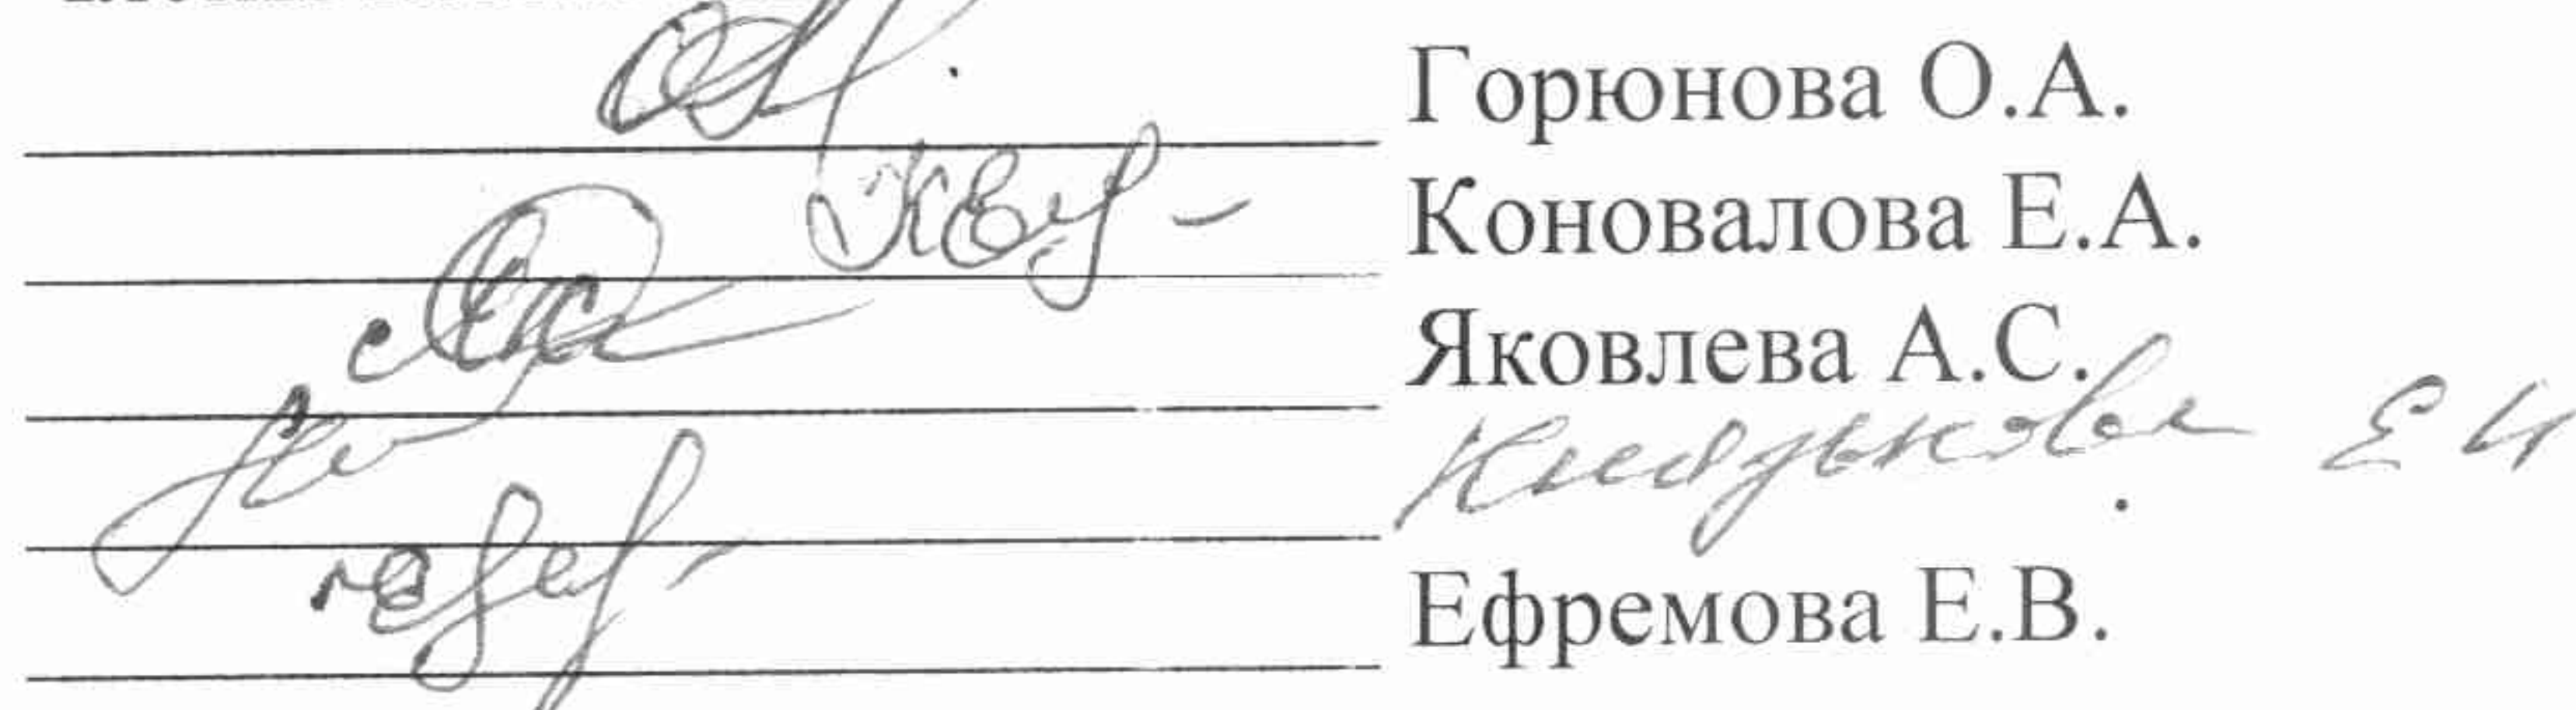 Горюнова О.А.
Коновалова Е.А.
Яковлева А.С.
Князькова Е И
Ефремова Е.В.